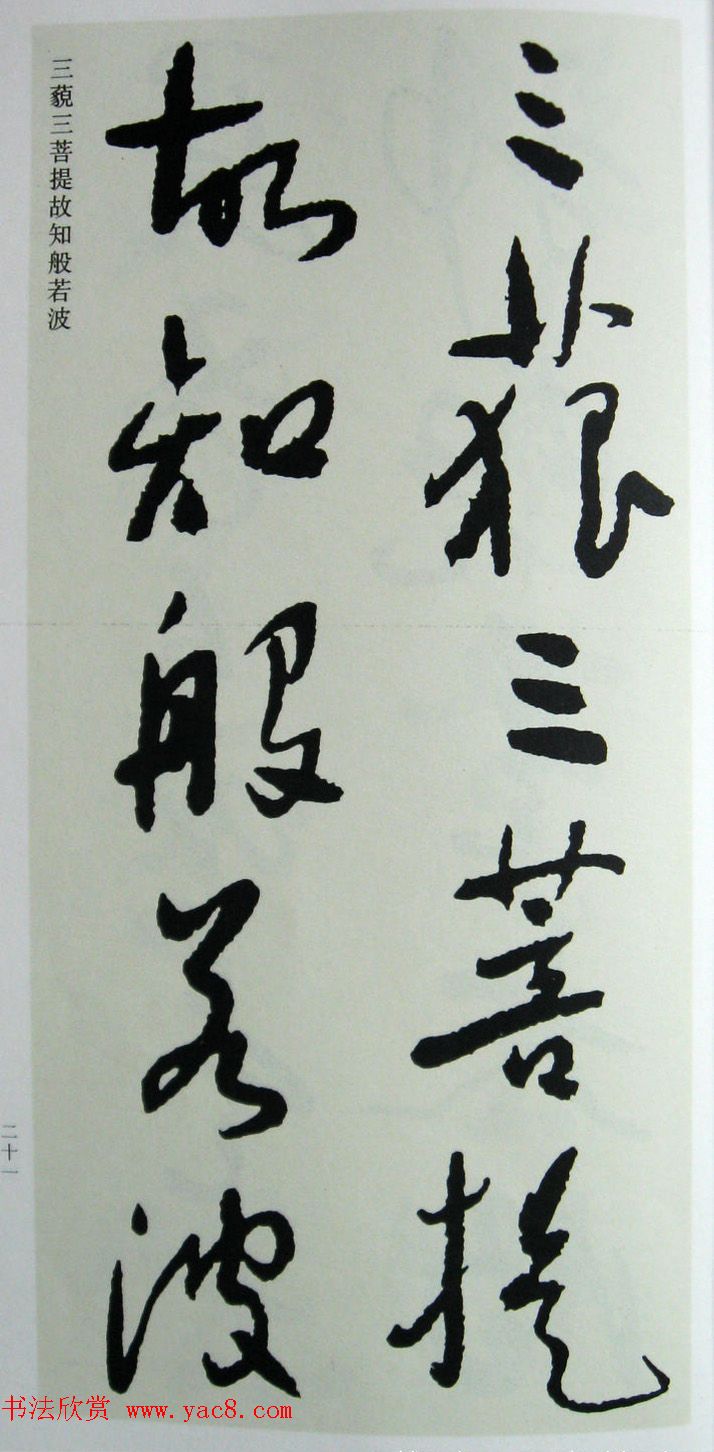 三藐三菩提
故知般若波
三藐三菩提故知般若波
二十一
书法欣赏 www.yac8.com